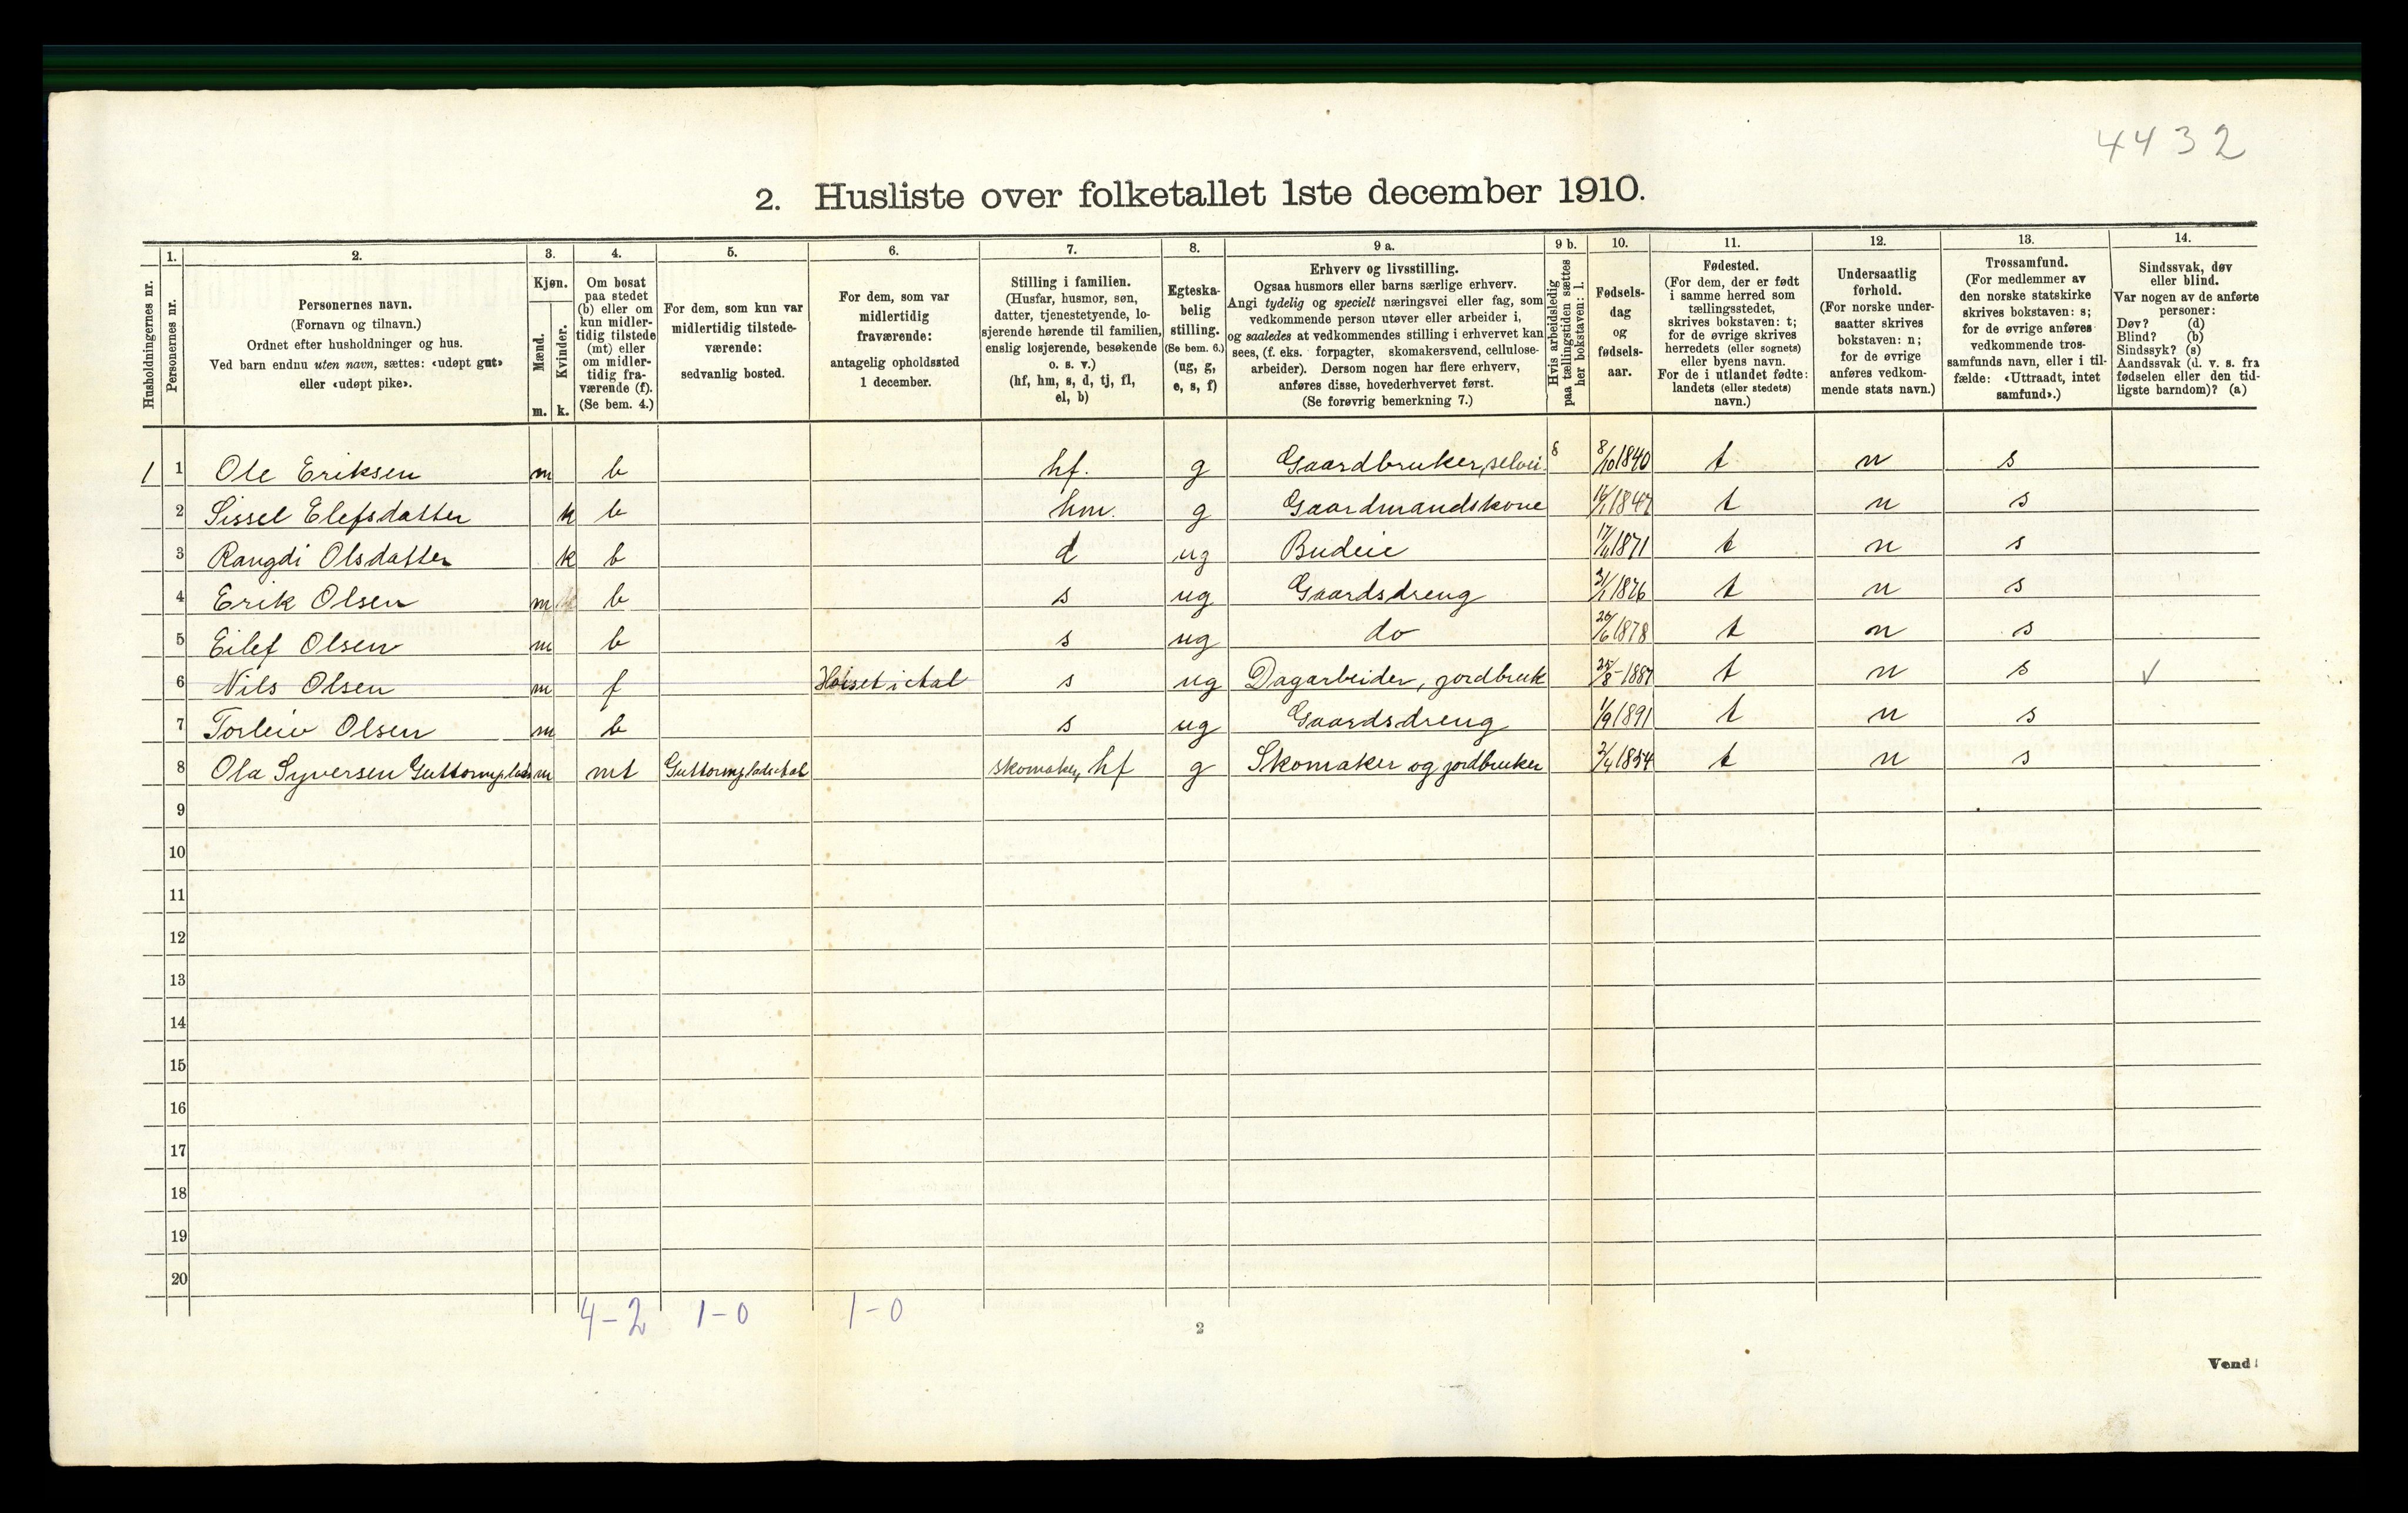 4432
2. Husliste over folketallet 1ste december 1910.
Husholdningernes nr.
1.
Personernes nr.
2.
Personernes navn.
(Fornavn og tilnavn.)
Ordnet efter husholdninger og hus.
Ved barn endnu uten navn, sættes: «udøpt gut»
eller «udøpt pike».
3.
Kjøn.
Mænd.
Kvinder.
m. k.
4.
Om bosat
paa stedet
(b) eller om
kun midler-
tidig tilstede
(mt) eller
om midler-
tidig fra-
værende (f).
(Se bem. 4.)
5.
For dem, som kun var
midlertidig tilstede-
værende:
sedvanlig bosted.
6.
For dem, som var
midlertidig
fraværende:
antagelig opholdssted
1 december.
7.
Stilling i familien.
(Husfar, husmor, søn,
datter, tjenestetyende, lo-
sjerende hørende til familien,
enslig losjerende, besøkende
o. s. v.)
(hf, hm, s, d, tj, fl,
el, b)
8.
Egteska-
belig
stilling.
(Se bem. 6.)
(ug, g,
e, s, f)
9 a.
Erhverv og livsstilling.
Ogsaa husmors eller barns særlige erhverv.
Angi tydelig og specielt næringsvei eller fag, som
vedkommende person utøver eller arbeider i,
og saaledes at vedkommendes stilling i erhvervet kan
sees, (f. eks. forpagter, skomakersvend, cellulose-
arbeider). Dersom nogen har flere erhverv,
anføres disse, hovederhvervet først.
(Se forøvrig bemerkning 7.)
9 b.
Hvis arbeidsledig
paa tællingstiden sættes
her bokstaven: l.
10.
Fødsels-
dag
og
fødsels-
aar.
11.
Fødested.
(For dem, der er født
i samme herred som
tællingsstedet,
skrives bokstaven: t;
for de øvrige skrives
herredets (eller sognets)
eller byens navn.
For de i utlandet fødte:
landets (eller stedets)
navn.)
12.
Undersaatlig
forhold.
(For norske under-
saatter skrives
bokstaven: n;
for de øvrige
anføres vedkom-
mende stats navn.)
13.
Trossamfund.
(For medlemmer av
den norske statskirke
skrives bokstaven: s;
for de øvrige anføres
vedkommende tros-
samfunds navn, eller i til-
fælde: «Uttraadt, intet
samfund».)
14.
Sindssvak, døv
eller blind.
Var nogen av de anførte
personer:
Døv? (d)
Blind? (b)
Sindssyk? (s)
Aandssvak (d. v. s. fra
fødselen eller den tid-
ligste barndom)? (a)
1 1 Ole Eriksen m b hf. g Gaardbruker, selvei. 8/10 1840 t n s
2 Sissel Elefsdatter k b hm. g Gaardmandskone 1847 t n s
3 Rangdi Olsdatter k b d ug Budeie 1871 t n s
4 Erik Olsen m b s ug Gaardsdreng 31/1 1876 t n s
5 Eilef Olsen m b s ug do 26/6 1878 t n s
6 Nils Olsen m f i Aal s ug Dagarbeider, jordbruk 25/8-1887 t n s ✓
7 Torleiv Olsen m b s ug Gaardsdreng 1/9 1891 t n s
8 Ola Syversen Guttormplads m mt skomaker, hf g Skomaker og jordbruker 2/4 1854 t n s
9
10
11
12
13
14
15
16
17
18
19
20
4-2 1-0 1-0
2
Vend!